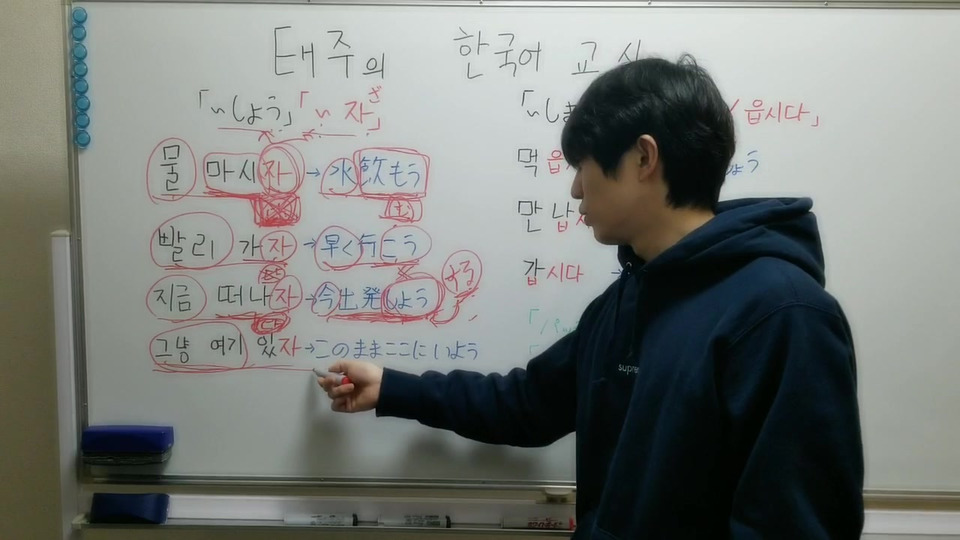 태주의 한국어 교시
「〜しよう」「〜자」
ざ
물 마시자 → 水飲もう
빨리 가자 → 早く行こう
지금 떠나자 → 今出発しよう
그냥 여기 있자 → このままここにいよう
읍시다」
먹읍
만납
갑시다 →
supre